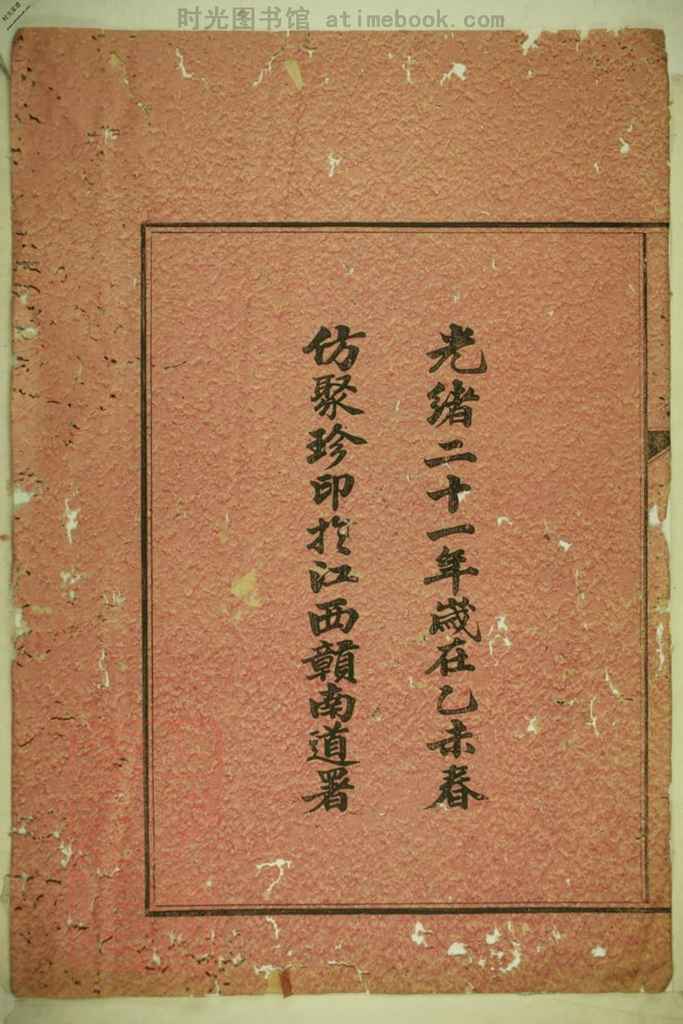 时光图书馆 atimebook.com
光緒二十一年歲在乙未春
仿聚珍印於江西贛南道署